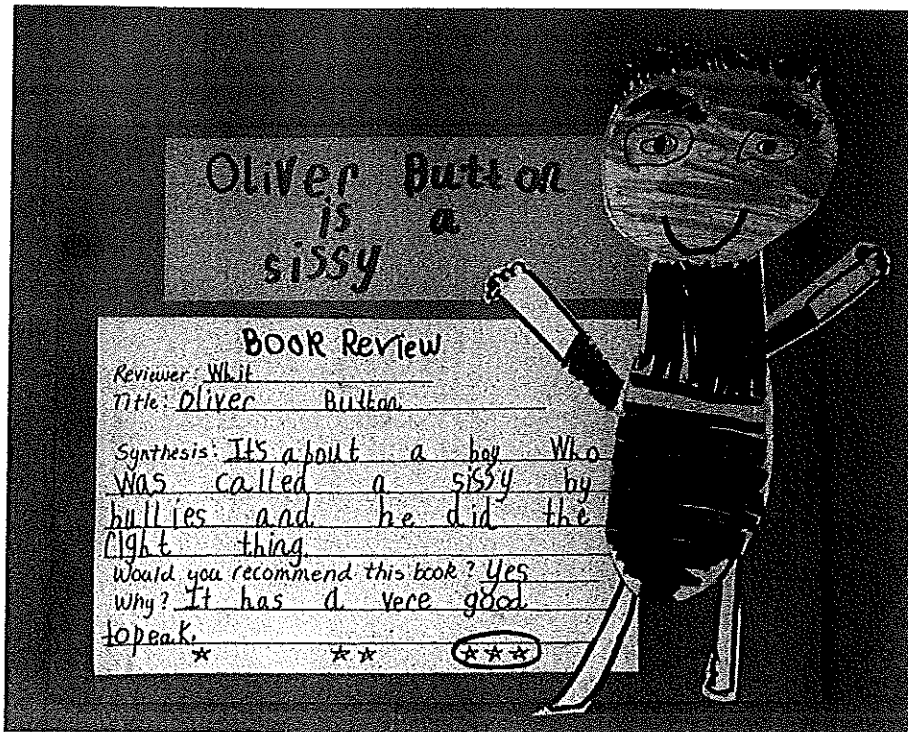 Oliver Button
is a
sissy
Book Review
Reviewer: Whit
Title: Oliver Button
Synthesis: It's about a boy Who
was called a sissy by
bullies and he did the
right thing
Would you recommend this book? Yes
Why? It has a vere good
topeak.
★ ★★ ★★★